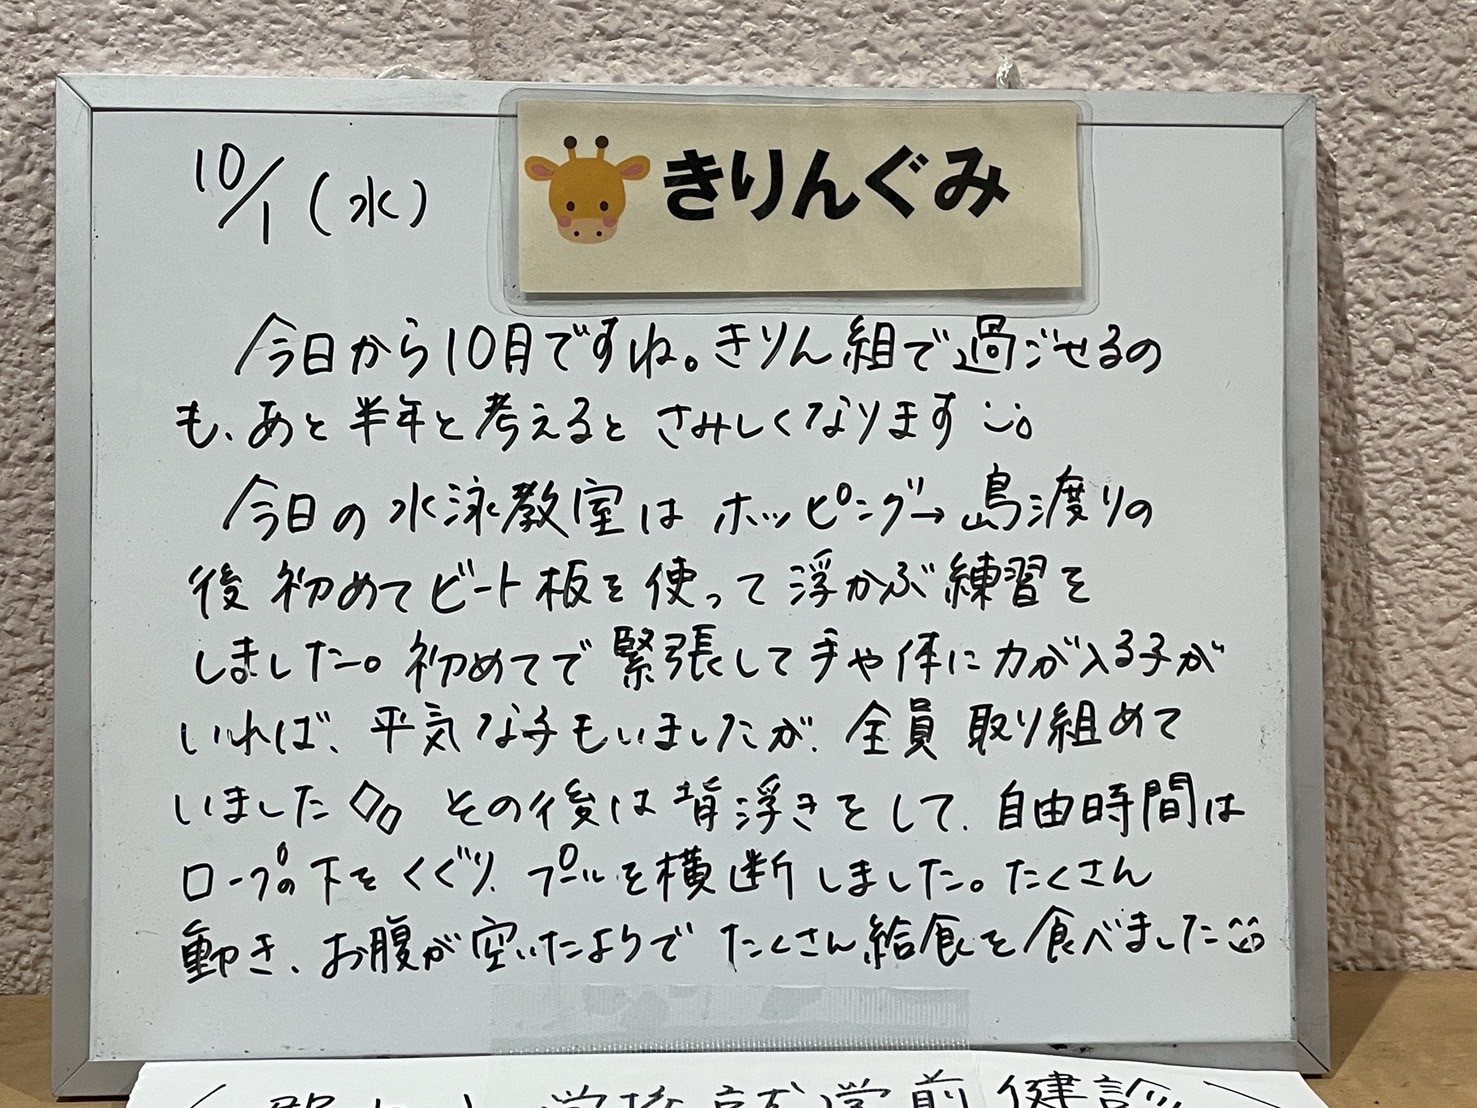 10/1(水)
きりんぐみ
今日から10月ですね。きりん組で過ごせるの
も、あと半年と考えるとさみしくなります
今日の水泳教室はホッピング→島渡りの
後初めてビート板を使って浮かぶ練習を
しました。初めてで緊張して手や体に力が入る子が
いれば、平気な子もいましたが、全員取り組めて
いました その後は背浮きをして、自由時間は
ロープの下をくぐり、プールを横断しました。たくさん
動き、お腹が空いたようでたくさん給食を食べました
就学前健診